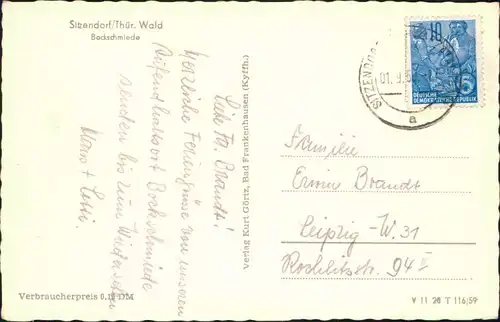 Sitzendorf/Thür. Wald
Bockschmiede
Liebe Fa. Brandt!
Herzliche Feriengrüsse von unserem
Aufenthaltsort Bockschmiede
senden bis zum Wiedersehn
Hans + Lotti.
Verlag Kurt Görtz, Bad Frankenhausen (Kyffh.)
Verbraucherpreis 0,12 DM
SITZENDOR
01. 9. 5
a
10
5
DEUTSCHE
DEMOKRATISCHE REPUBLIK
Familie
Erwin Brandt
Leipzig-W. 31
Rochlitzstr. 94 II
V 11 28 T 116/59